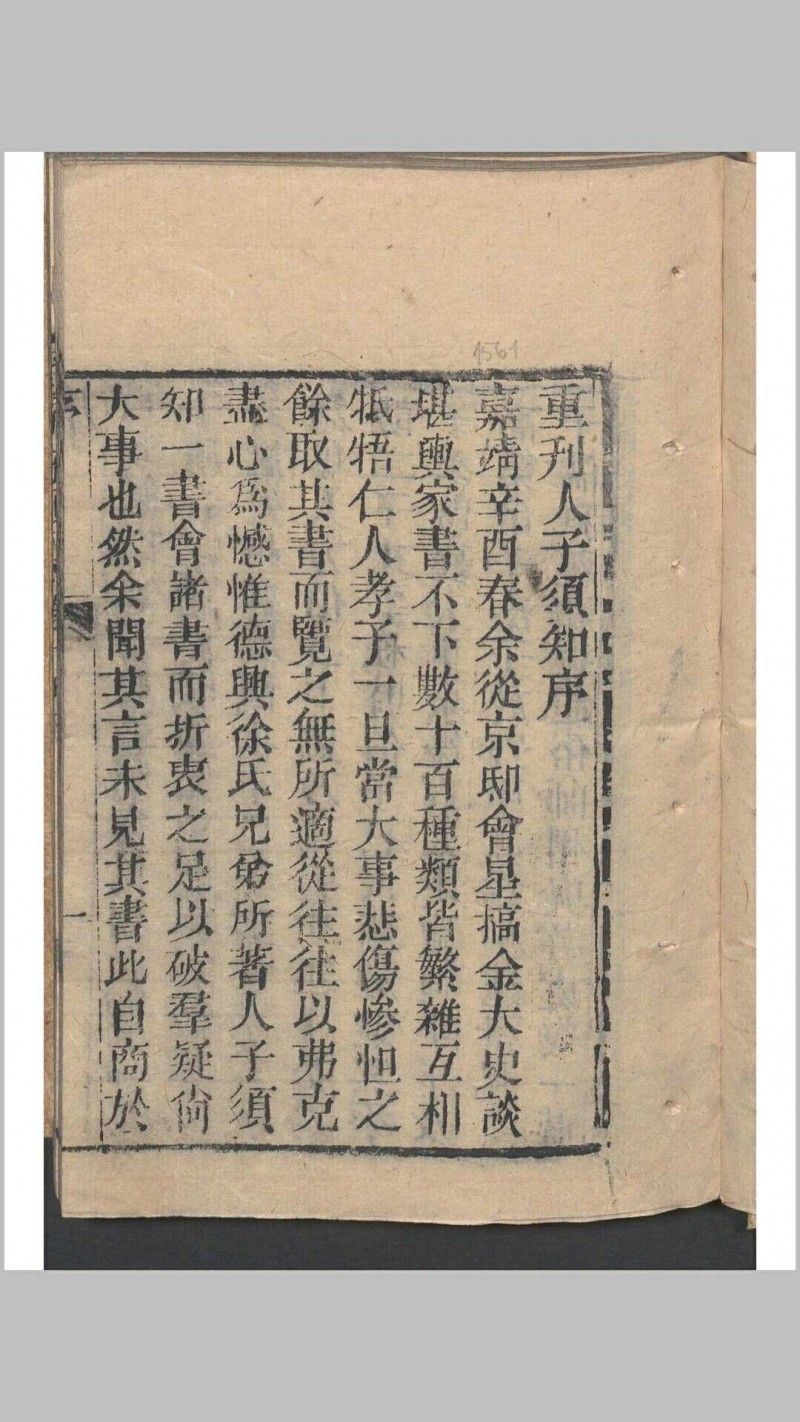 1561
重刋人子須知序
嘉靖辛酉春余從京邸會星搞金大史談
堪輿家書不下數十百種類皆繁雜互相
牴牾仁人孝子一旦當大事悲傷慘怛之
餘取其書而覽之無所適從徃徃以弗克
盡心爲憾惟德興徐氏兄弟所著人子須
知一書會諸書而折衷之足以破羣疑尙
大事也然余聞其言未見其書此自商於
序
一